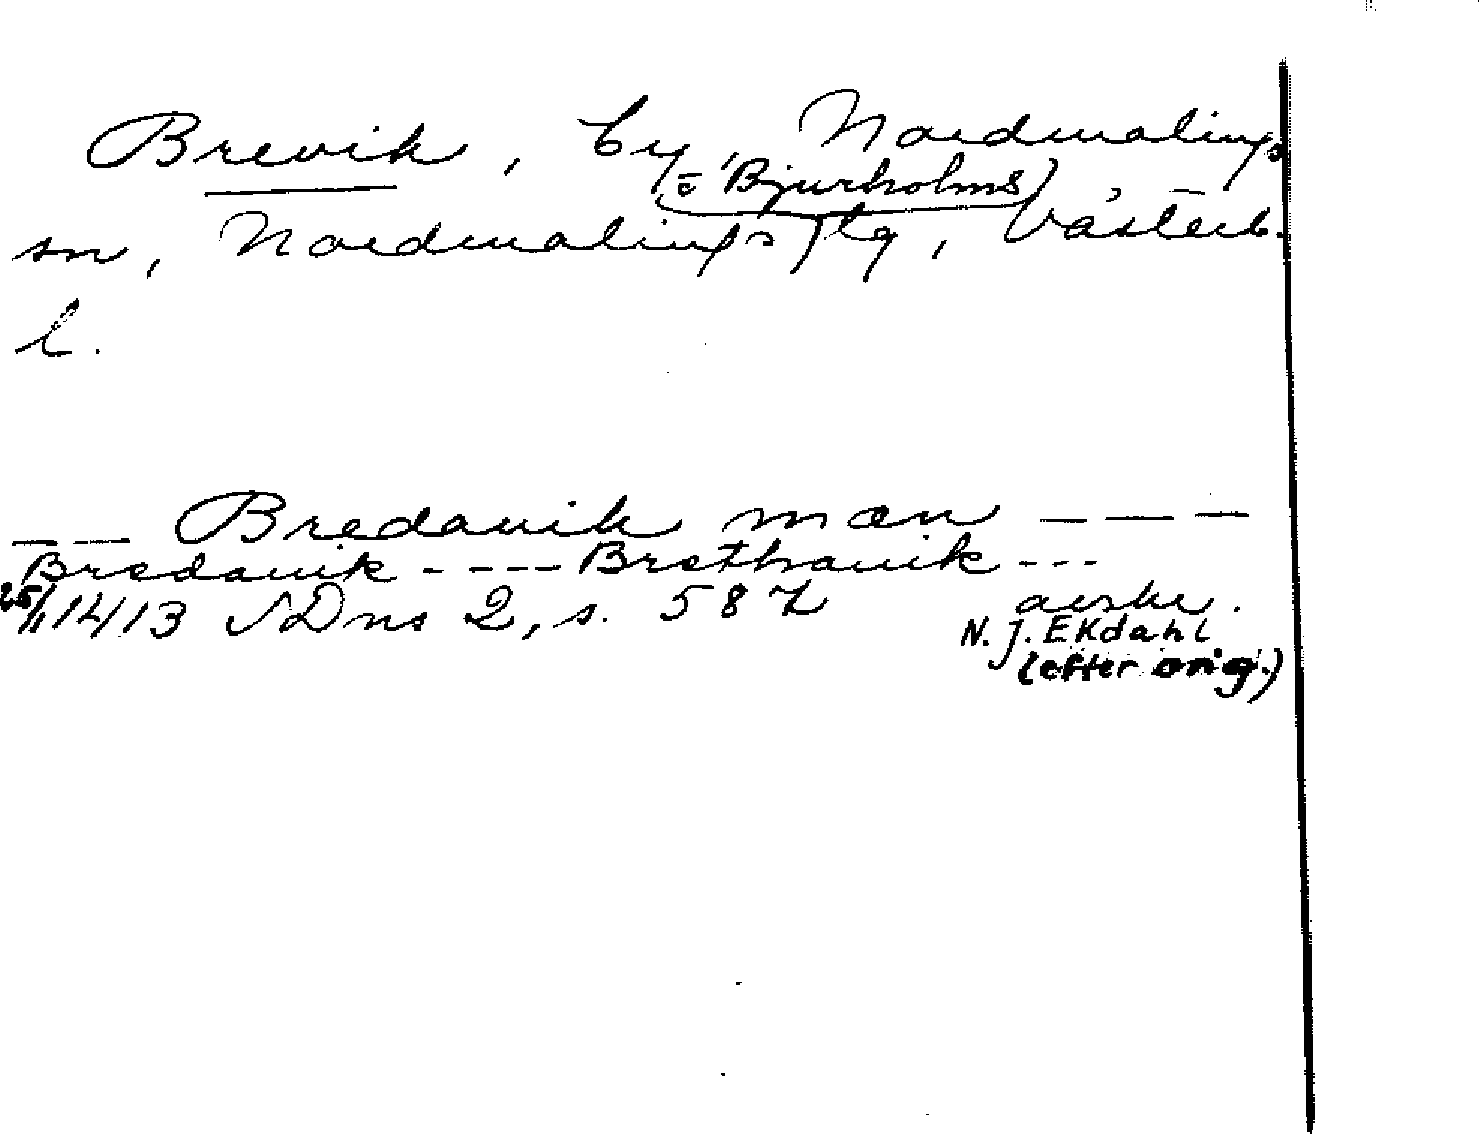 Brevik, by, Nordmalings
(o Bjurholms)
sn, Nordmalings tg, Västerb.
l.
--- Bredavik mæn ---
Bredavik ---- Brethavik ---
25/11 1413 SDns 2, s. 587 avskr.
N. J. Ekdahl
(efter orig.)